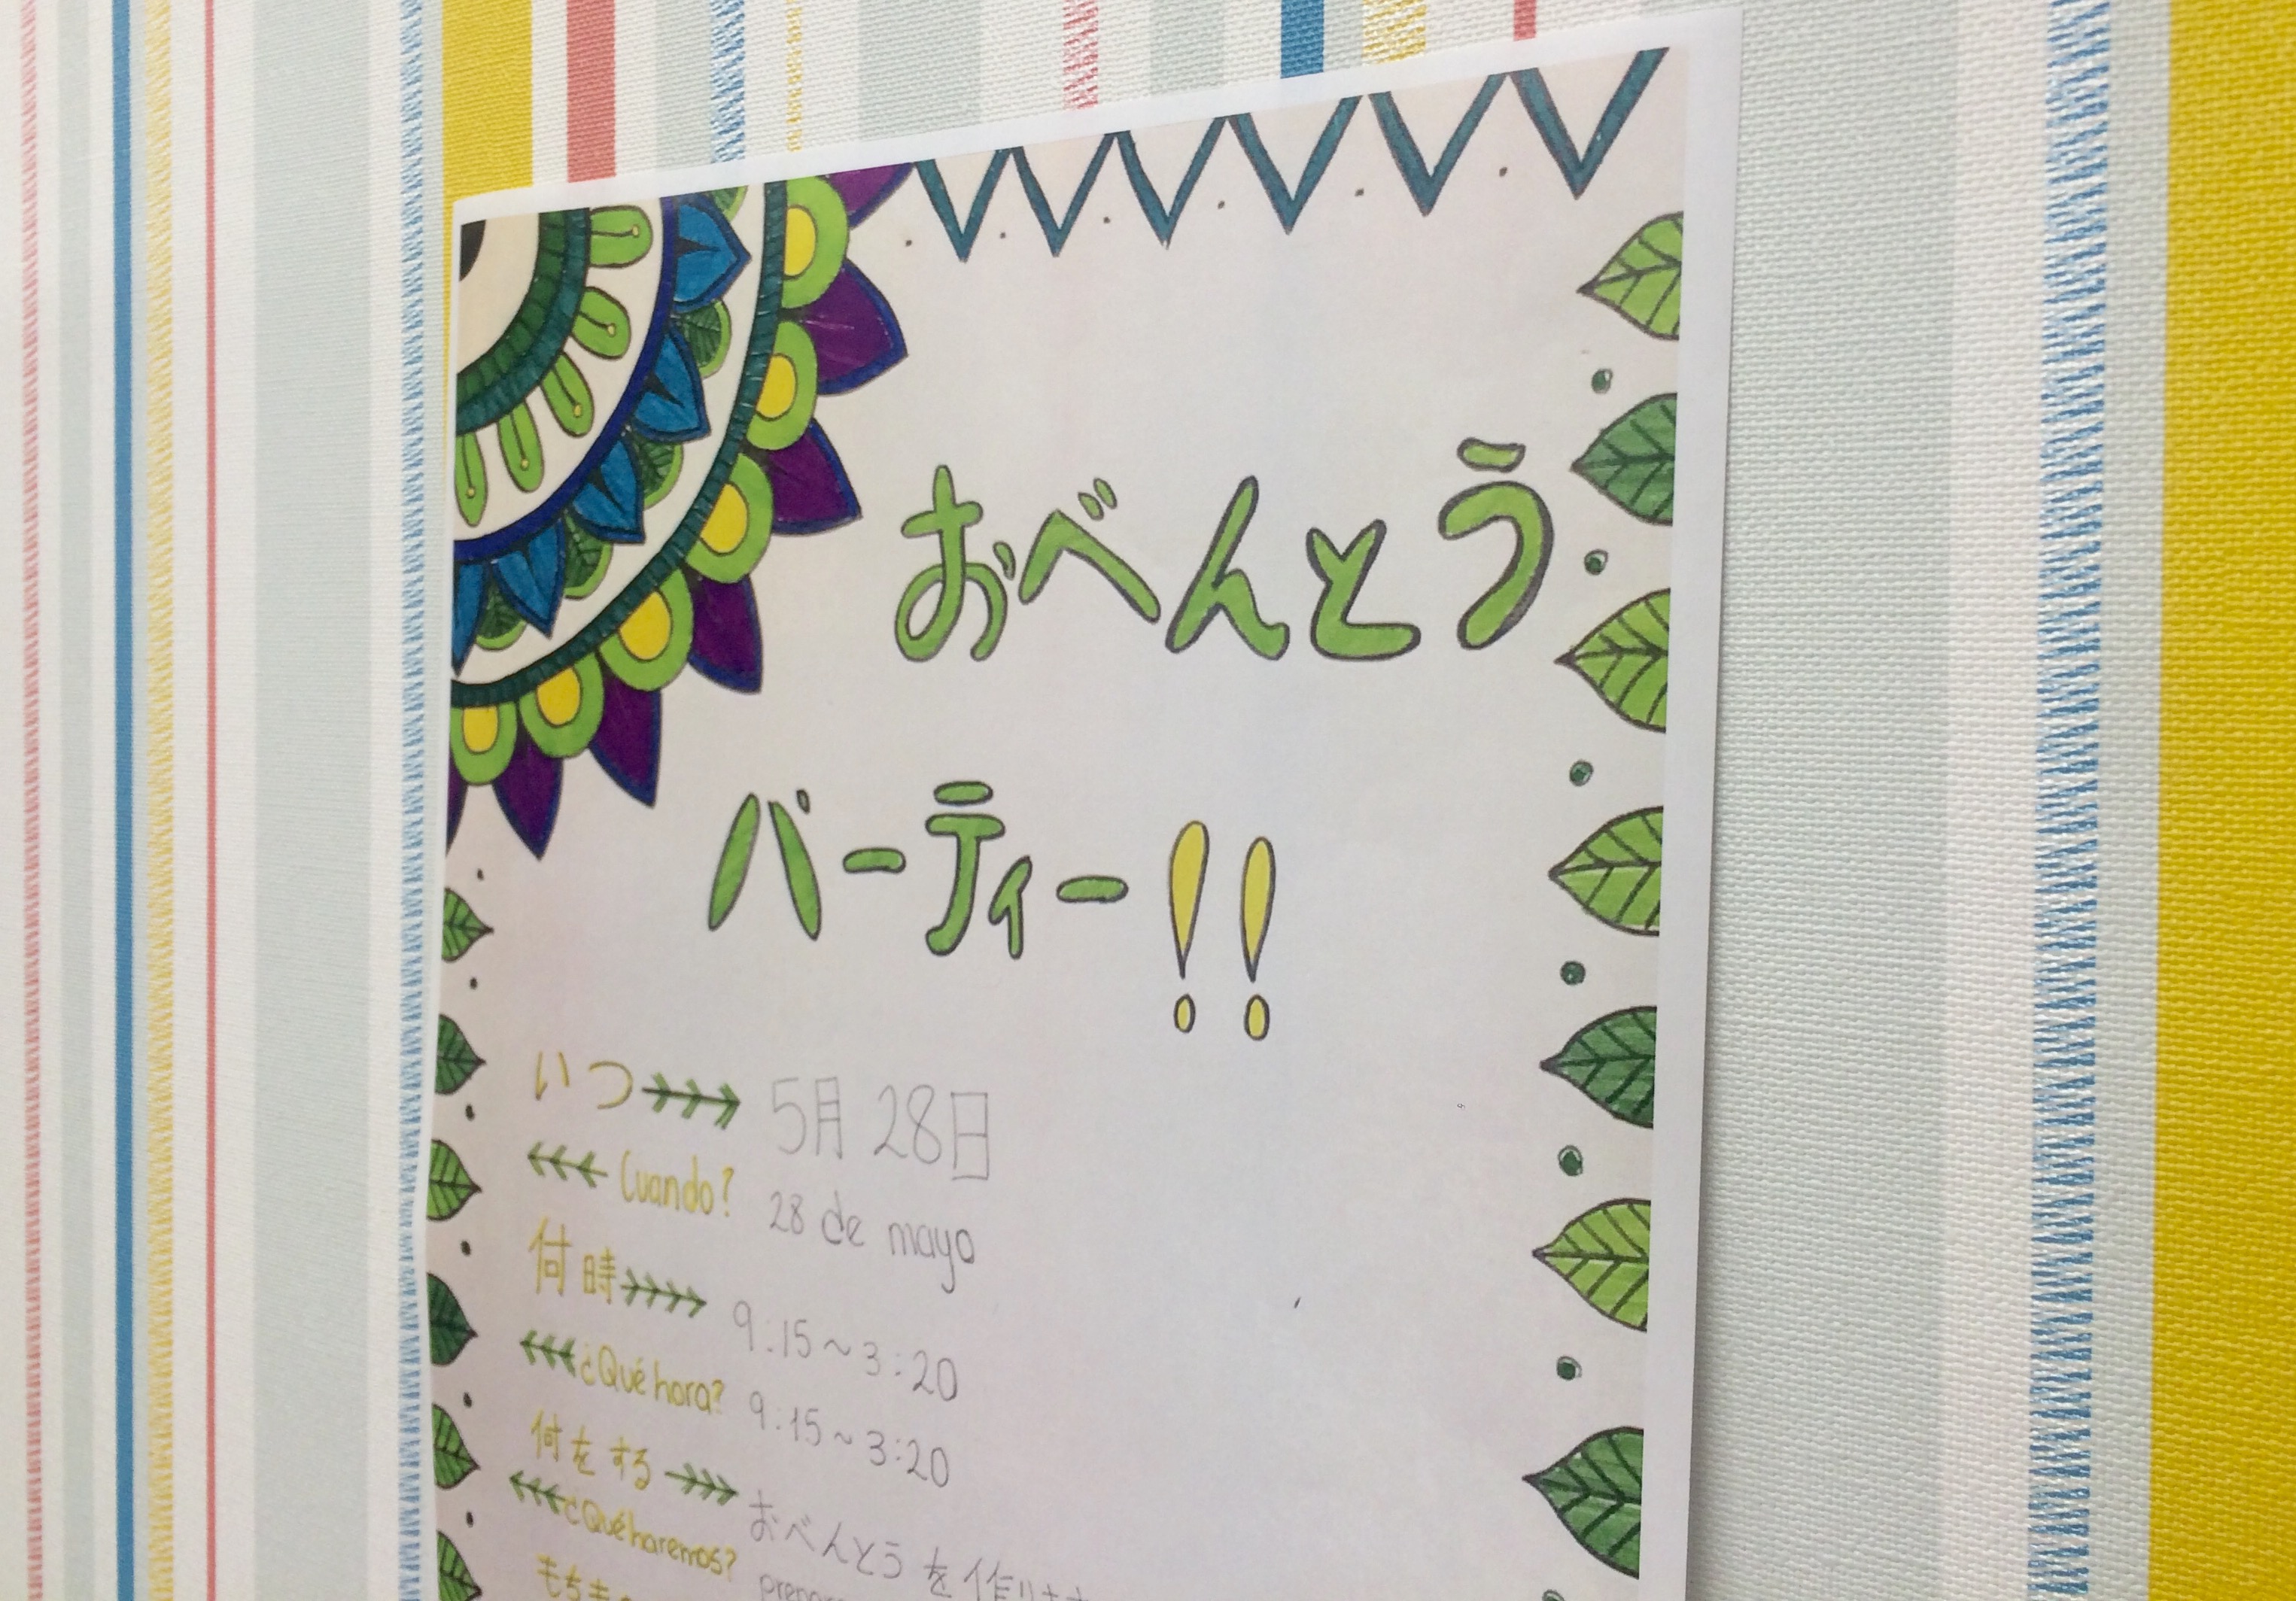 おべんとう
パーティー!!
いつ 5月28日
Cuando? 28 de mayo
何時 9:15~3:20
¿Qué hora? 9:15~3:20
何をする おべんとうを作ります
¿Qué haremos?